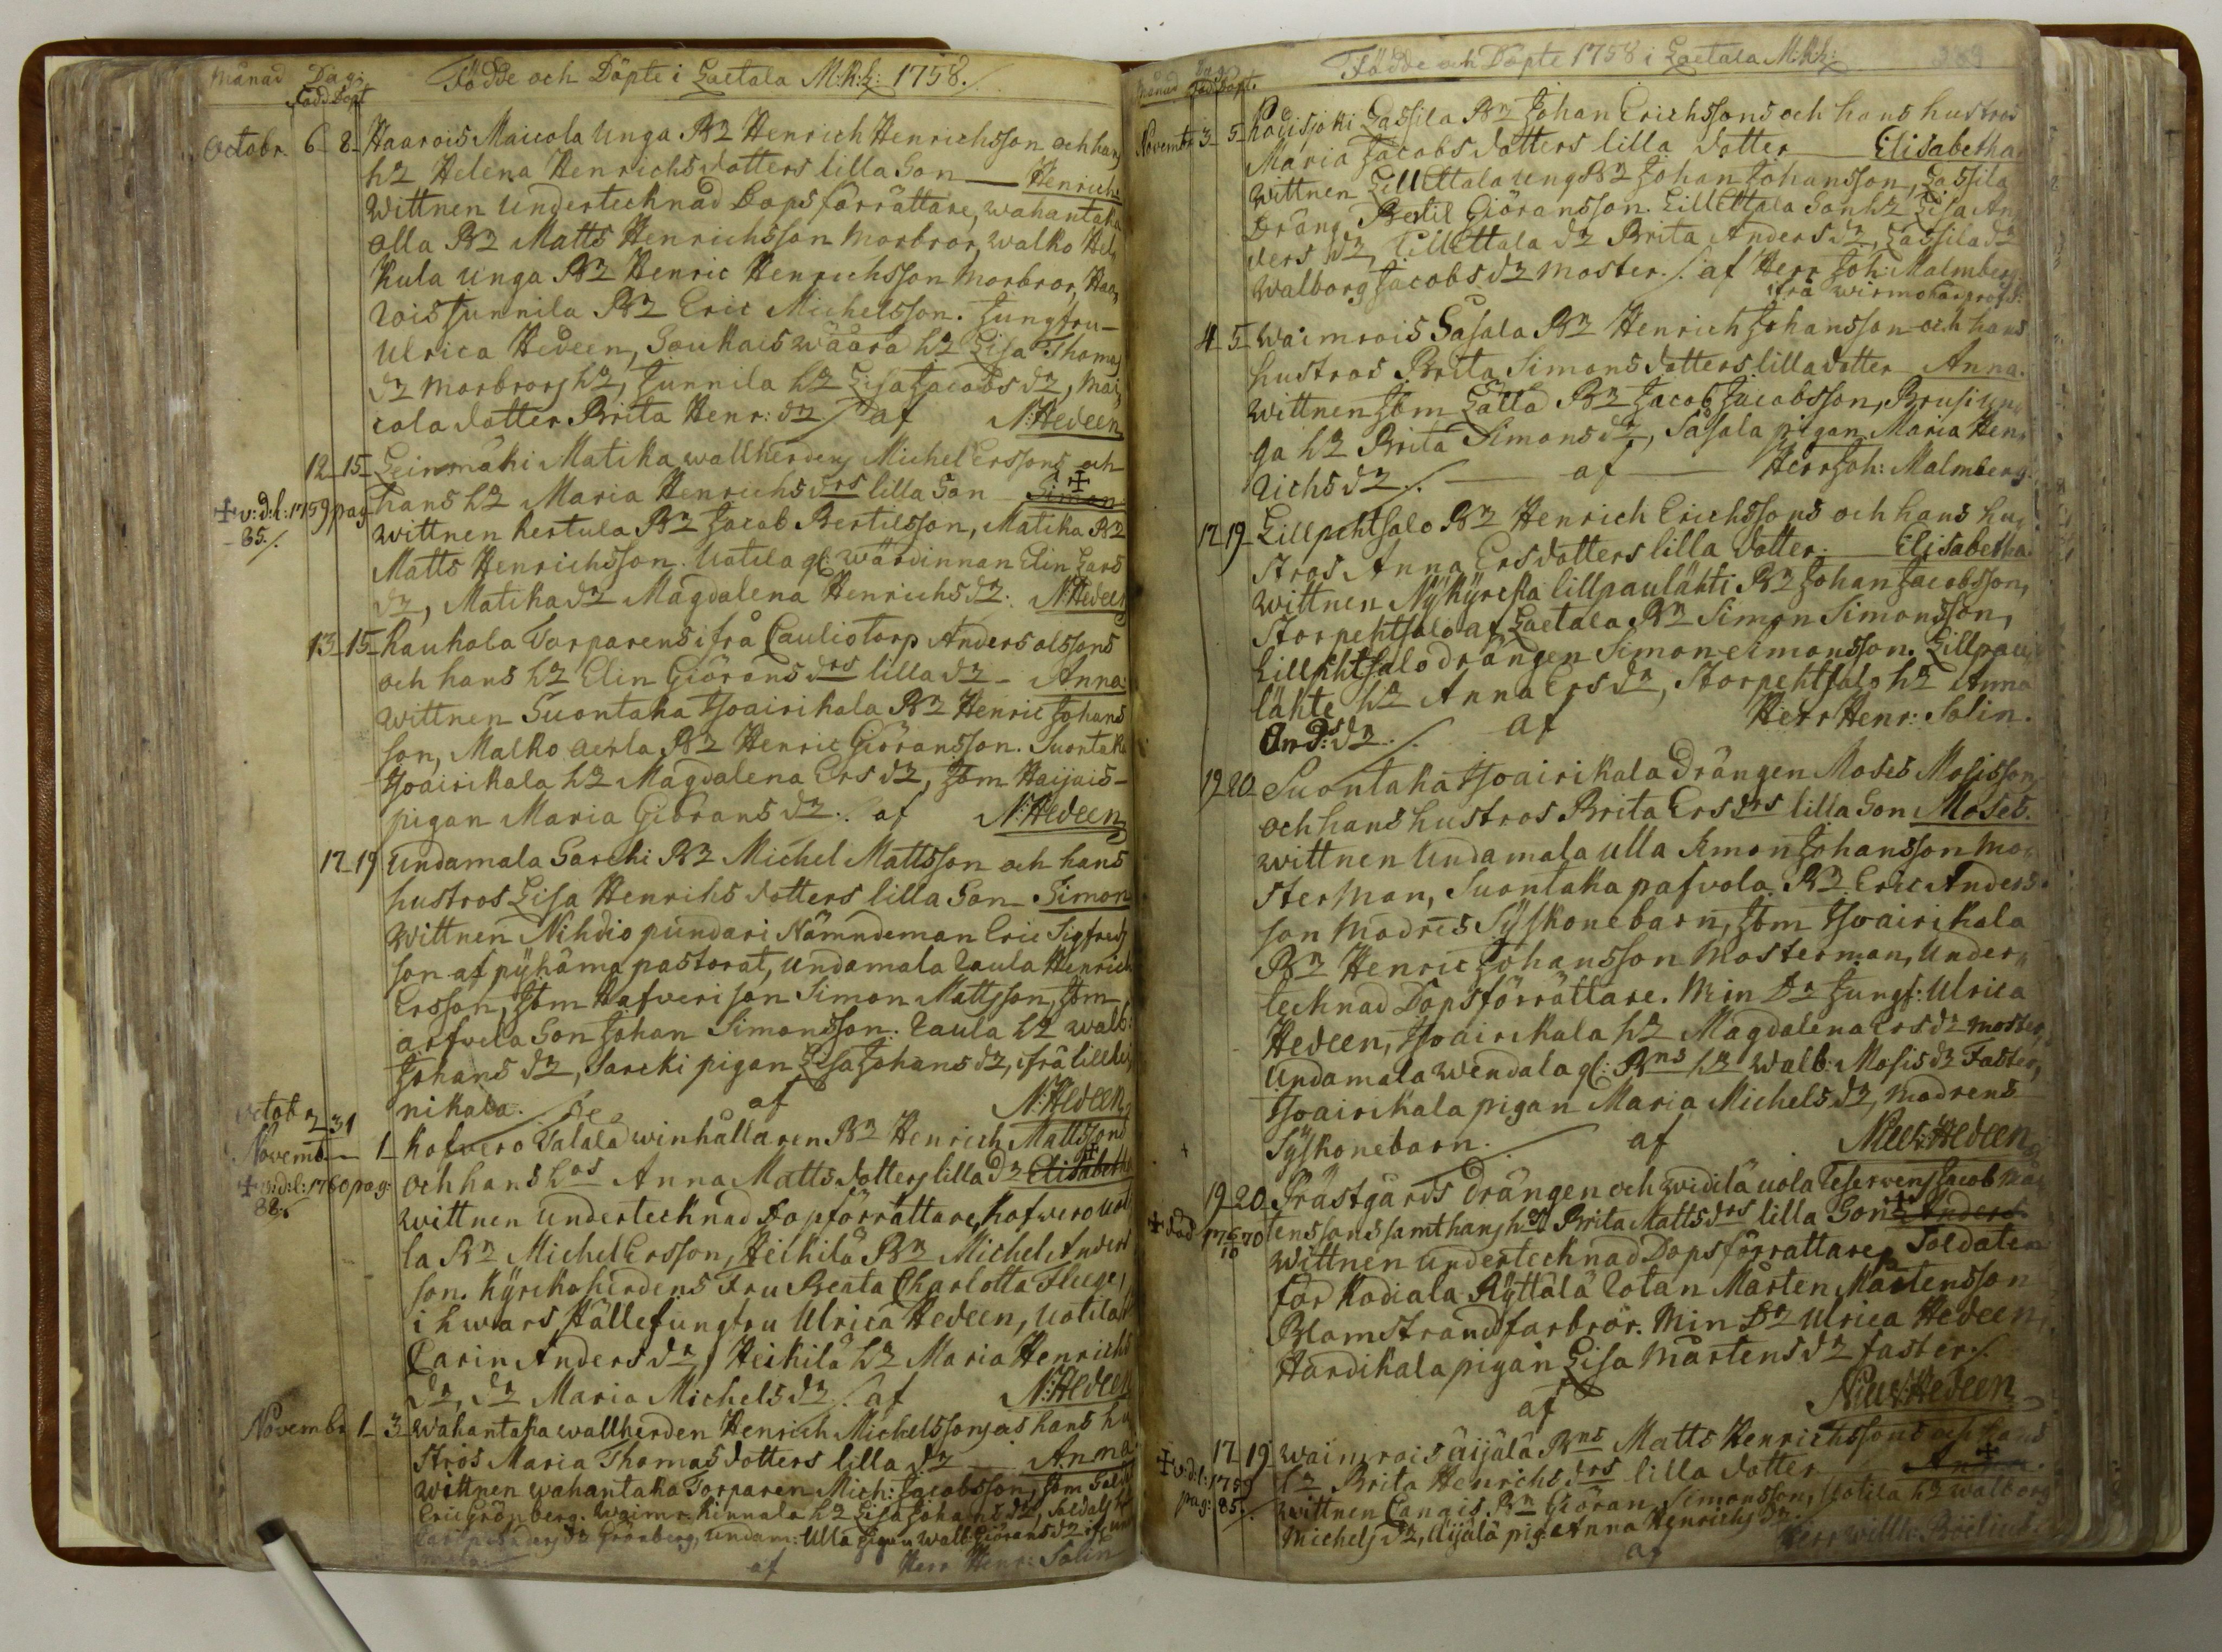 Månad Dag: Födde och Döpte i Laetala M:K:L: 1758./
Född Döpt
Octobr. 6 8 Haarois Maicola Unga Bz Henrich Henrichsson och hans
hz Helena Henrichsdotters lilla Son — Henrich
Wittnen Undertecknad Dopsförrättare, wahantaka
olla Bz Matts Henrichsson Morbror, walko Hei
kula unga Bz Henric Henrichsson Morbror, Haa
rois Junnila Bz Eric Michelsson. Jungfru
Ulrica Hedeen, Soukais wäära hz Lisa Thomas
dz morbrors hz, Junnila hz Lisa Jacobs dz, Mai
cola dotter Brita Henr: dz / af N: Hedeen
12 15 Leinmäki Matika wallherdens Michel Erssons och
✝ v:d:l: 1759 pag hans hz Maria Henrichs drs lilla Son Simon
85./ wittnen kertula Bz Jacob Bertilsson, Matika Bz
Matts Henrichsson. Uotila gl: wärdinnan Elin Lars
dz, Matika dz Magdalena Henrichs dz. N: Hedeen
13 15 Kaukola Torparens ifrå Cauliotorp Anders olssons
och hans hz Elin Giörans drs lilla dz - Anna
wittnen Suontaka Tsoairikala Bz Henric Johans
son, Malko aerla Bz Henric Giöransson. Suontaka
Tsoairikala hz Magdalena Ers dz, Jbm Haijais
pigan Maria Giörans dz. af N: Hedeen
17 19 Undamala Sarcki Bz Michel Mattsson och hans
hustros Lisa Henrihs dotters lilla Son Simon
Wittnen Nihdio pundari Nämndeman Eric Sigfreds
son af pyhäma pastorat, Undamala Caula Henrich
Ersson, Jbm Kafveri son Simon Mattsson, Jbm
arfvela Son Johan Simonsson. Caula hz walb:
Johans dz, Sarcki pigan Lisa Johans dz, ifrå lillhei
nikala. af N: Hedeen
octobr 31
Novemb. 1 Kofvero Talala winhållaren Bz Henrich Mattssons
✝ v:d:l: 1760 pag: och hans hos Anna Matts dotters lilla dz Elisabetha
88. wittnen undertecknad Dopförrättare, kofvero uoti
la Bn Michel Ersson, Heikilä Bn Michel Anders
son. Kyrckoherdens Fru Beata Charlotta Flege,
i hwars ställe jungfru Ulrica Hedeen, Uotila hz
Carin Anders dr, Heikilä hz Maria Henrichs
dr, dz Maria Michels dz. af N: Hedeen
Novembr 1 3 Wahantaka wallherden Henrich Michelssons och hans hu
stros Maria Thomas dotters lilla dz — Anna
wittnen wahantaka Torparen Mich: Jacobsson, Jbm
Eric Grönberg. Waimr. Kinnala hz Lisa Johans dz,
Grönberg, Undam: Ulla pigan walb: Giörans dz
af Herr Henr: Solin
Månad Dag Född Döpt. Födde och Döpte 1758 i Laetala M:K:L:
Novembr 3 5 Kodisjoki Lassila Bz Johan Erichssons och hans hustros
Maria Jacobs dotters lilla dotter — Elisabetha
Wittnen Lill Ettala ung Bz Johan Johansson, Lassila
Dräng Bertil Giöransson. Lill Ettala Son hz Lisa An
ders dz, Lill Ettala dz Brita Anders dz, Lassila dz
Walborg Jacobs dz moster./. af Herr Joh: Malmberg
ifrå wirmo
4 5 Waimrois Sasala Bz Henrich Johansson och hans
hustros Brita Simons dotters lilla dotter Anna.
Wittnen Jbm Lalla Bz Jacob Jacobsson, Brusi un
ga hz Brita Simons dz, Sasala pigan Maria Hen
richs dz./. — af — Herr Joh: Malmberg.
17 19 Lillpehtsalo Bz Henrich Erichssons och hans hu
stros Anna Ers dotters lilla dotter. — Elisabetha
Wittnen Nykyrcka lillpaulähti Bz Johan Jacobsson,
Storpehtsalo af Laetala Bn Simon Simonsson,
Lillpehtsalo drängen Simon Simonsson. Lillpau
lähte hz Anna Ers dr, Storpehtsalo hz Anna
And:s dz./. af Herr Henr: Solin.
19 20 Suontaka Tsoairikala Drängen Moses Mosisson
och hans hustros Brita Ers drs lilla Son Moses.
wittnen Undamala ulla Simon Johansson Mo
sterman, Suontaka pafvola Bz Eric Anders
son Modres Syskonebarn, Jbm Tsoairikala
Bn Henric Johansson Mosterman, Under
tecknad Dopsförrättare. Min Dr Jungf: Ulrica
Hedeen, Tsoairikala hz Magdalena Ers dz moster,
Undamala Wendala gl: Bns hz walb: Mosis dz Faster,
Tsoairikala pigan Maria Michels dz, modrens
Syskonebarn. af Nils: Hedeen
19 20 Prästgårds Drängen och widilä uola Reserwens Jacob Mår
✝ död 1770 tenssons samt hans hos Brita Matts drs lilla Son Anders
Wittnen undertecknad Dopsförrättare, Soldaten
för Kodiala Ryttälä Rotan Mårten Mårtensson
Blomstrand farbror. Min Dr Ulrica Hedeen,
Hardikala pigan Lisa Mårtens dz faster./.
af Nils: Hedeen
17 19 Waimrois äijälä Bns Matts Henrichssons och hans
✝ v:d:l: 1759 hz Brita Henrichs drs lilla dotter
pag: 85. Wittnen Cangis. Bn Giöran Simonsson, Uotila hz Walborg
Michels dz, Äijälä pig: Anna Henrichs dz.
af Herr Willh: